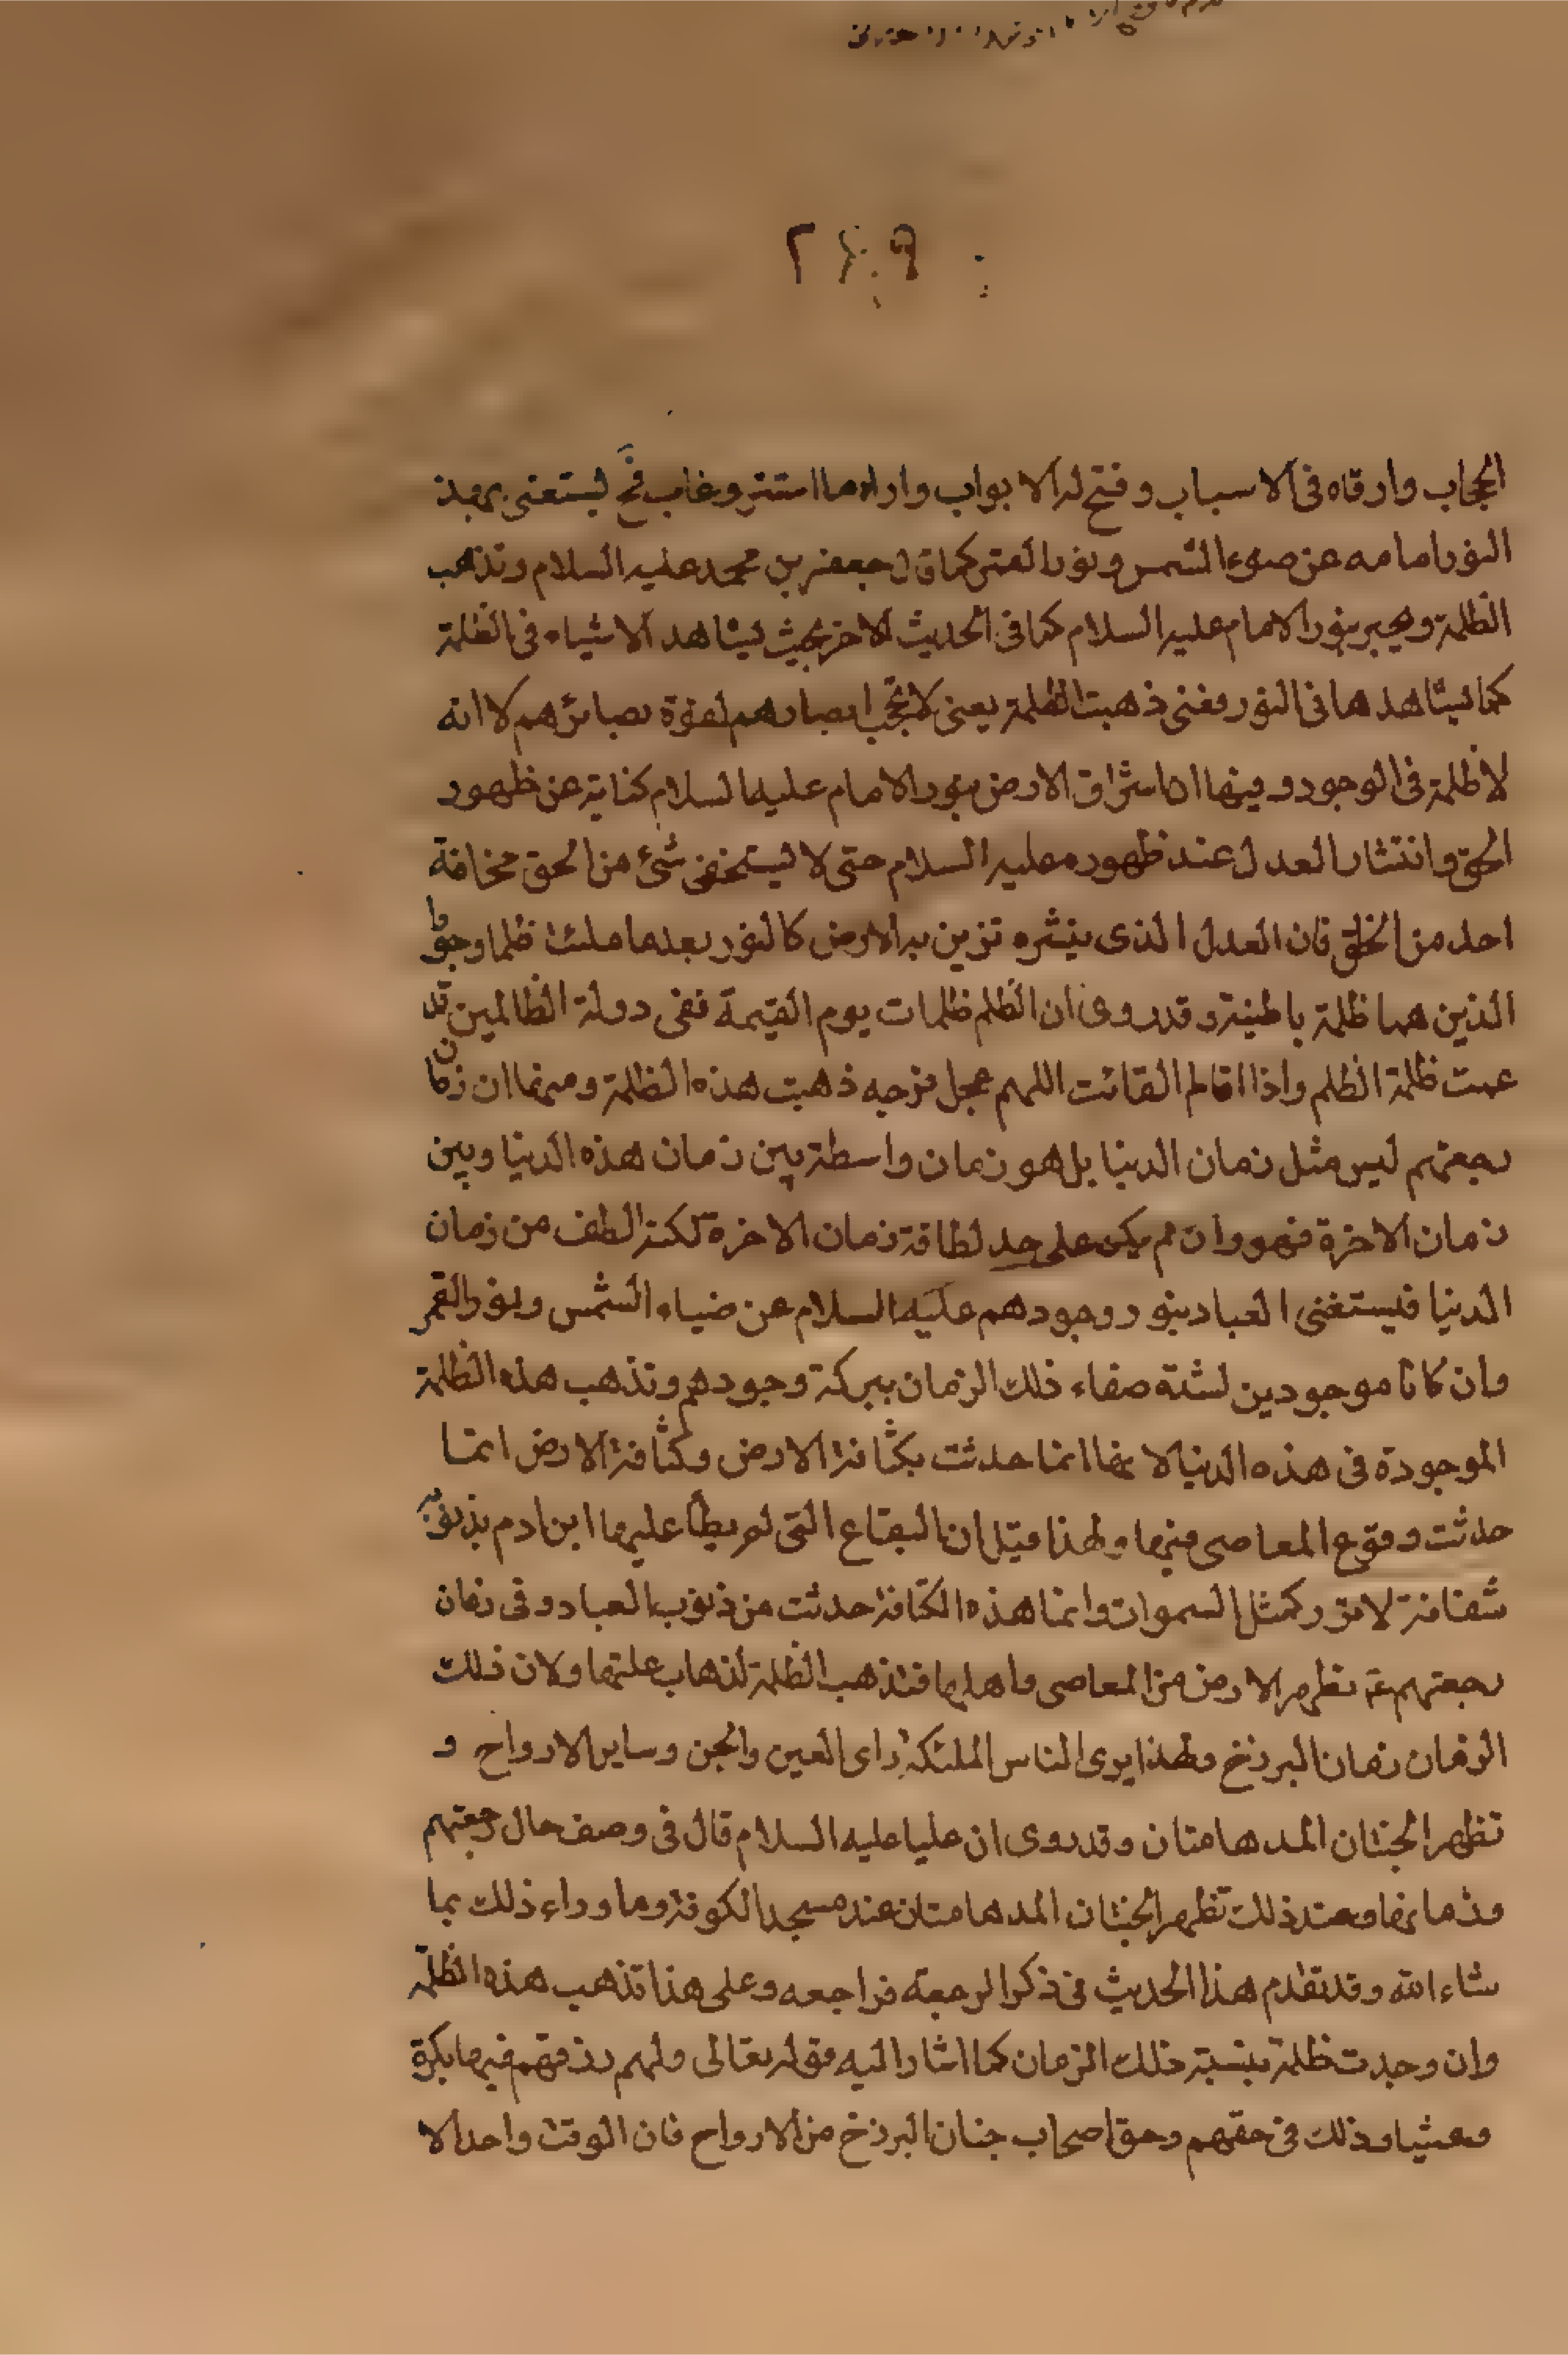 ٢٤٩
الحجاب وارقاه فى الاسباب وفتح له الابواب واراه ما استتر وغاب فح يستغنى بهذ
النور امامه عن ضوء الشمس ونور القمر كما قال جعفر بن محمد عليه السلام وتذهب
الظلمة ويجبر بنور الامام عليه السلام كما فى الحديث الاخر بحيث يشاهد الاشياء فى الظلمة
كما يشاهدها فى النور فمعنى ذهبت الظلمة يعنى لا تحجب ابصارهم لقوة بصائرهم لا انه
لا ظلمة فى الوجود ومنها ان اشراق الارض بنور الامام عليه السلام كناية عن ظهور
الحق وانتشار العدل عند ظهوره عليه السلام حتى لا يستخفى شئ من الحق مخافة
احد من الخلق فان العدل الذى ينشره تزين به الارض كالنور بعدما ملئت ظلما وجورا
الذين هما ظلمة باطنية وقد روى ان الظلم ظلمات يوم القيمة ففى دولة الظالمين قد
عمت ظلمة الظلم واذا اقام القائم اللهم عجل فرجه ذهبت هذه الظلمة ومنها ان زمان
رجعتهم ليس مثل زمان الدنيا بل هو زمان واسطة بين زمان هذه الدنيا وبين
زمان الاخرة فهو وان لم يكن على حد لطافة زمان الاخرة لكنه الطف من زمان
الدنيا فيستغنى العباد بنور وجودهم عليه السلام عن ضياء الشمس ونور القمر
وان كانا موجودين لشدة صفاء ذلك الزمان ببركة وجودهم وتذهب هذه الظلمة
الموجودة فى هذه الدنيا لانها انما حدثت بكثافة الارض وكثافة الارض انما
حدثت وقوع المعاصى فيها ولهذا قيل ان البقاع التى لم يطأ عليها ابن ادم بذنوبه
شفافة لا نور كمثل السموات وانما هذه الكثافة حدثت من ذنوب العباد وفى زمان
رجعتهم ع تطهر الارض من المعاصى واهلها فتذهب الظلمة لذهاب علتها ولان ذلك
الزمان زمان البرزخ ولهذا يرى الناس الملئكة راى العين والجن وساير الارواح و
تظهر الجنتان المدهامتان وقد روى ان عليا عليه السلام قال فى وصف حال رجعتهم
وزمانها وعند ذلك تظهر الجنتان المدهامتان عند مسجد الكوفة وما وراء ذلك بما
شاء الله وقد تقدم هذا الحديث فى ذكر الرجعة فراجعه وعلى هذا تذهب هذه الظلمة
وان وجدت ظلمة بنسبة ذلك الزمان كما اشار اليه قوله تعالى ولهم رزقهم فيها بكرة
وعشيا وذلك فى حقهم وحق اصحاب جنان البرزخ من الارواح فان الوقت واحد الا